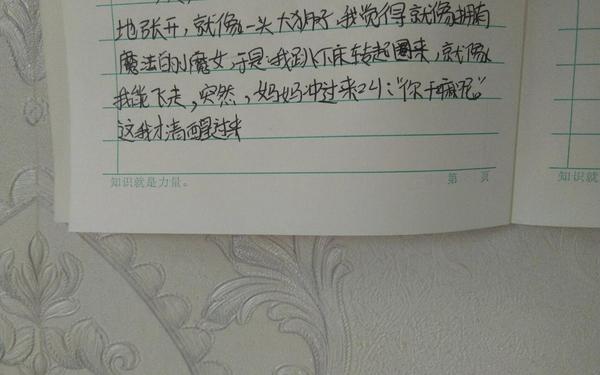 地张开，就像一头大狮子，我觉得就像拥有
魔法的小魔女，于是，我跳下床转起圈来，就像
我能飞走，突然，妈妈冲过来叫：“你干嘛呢”
这我才清醒过来
知识就是力量。 第 页 知识就